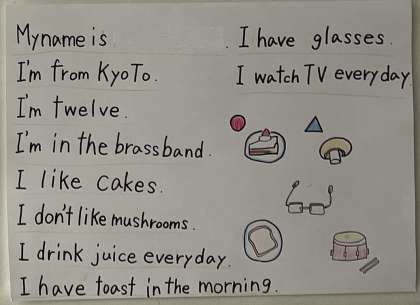 My name is .
I'm from KyoTo.
I'm twelve.
I'm in the brass band.
I like cakes.
I don't like mushrooms.
I drink juice everyday.
I have toast in the morning.
I have glasses.
I watch TV everyday.